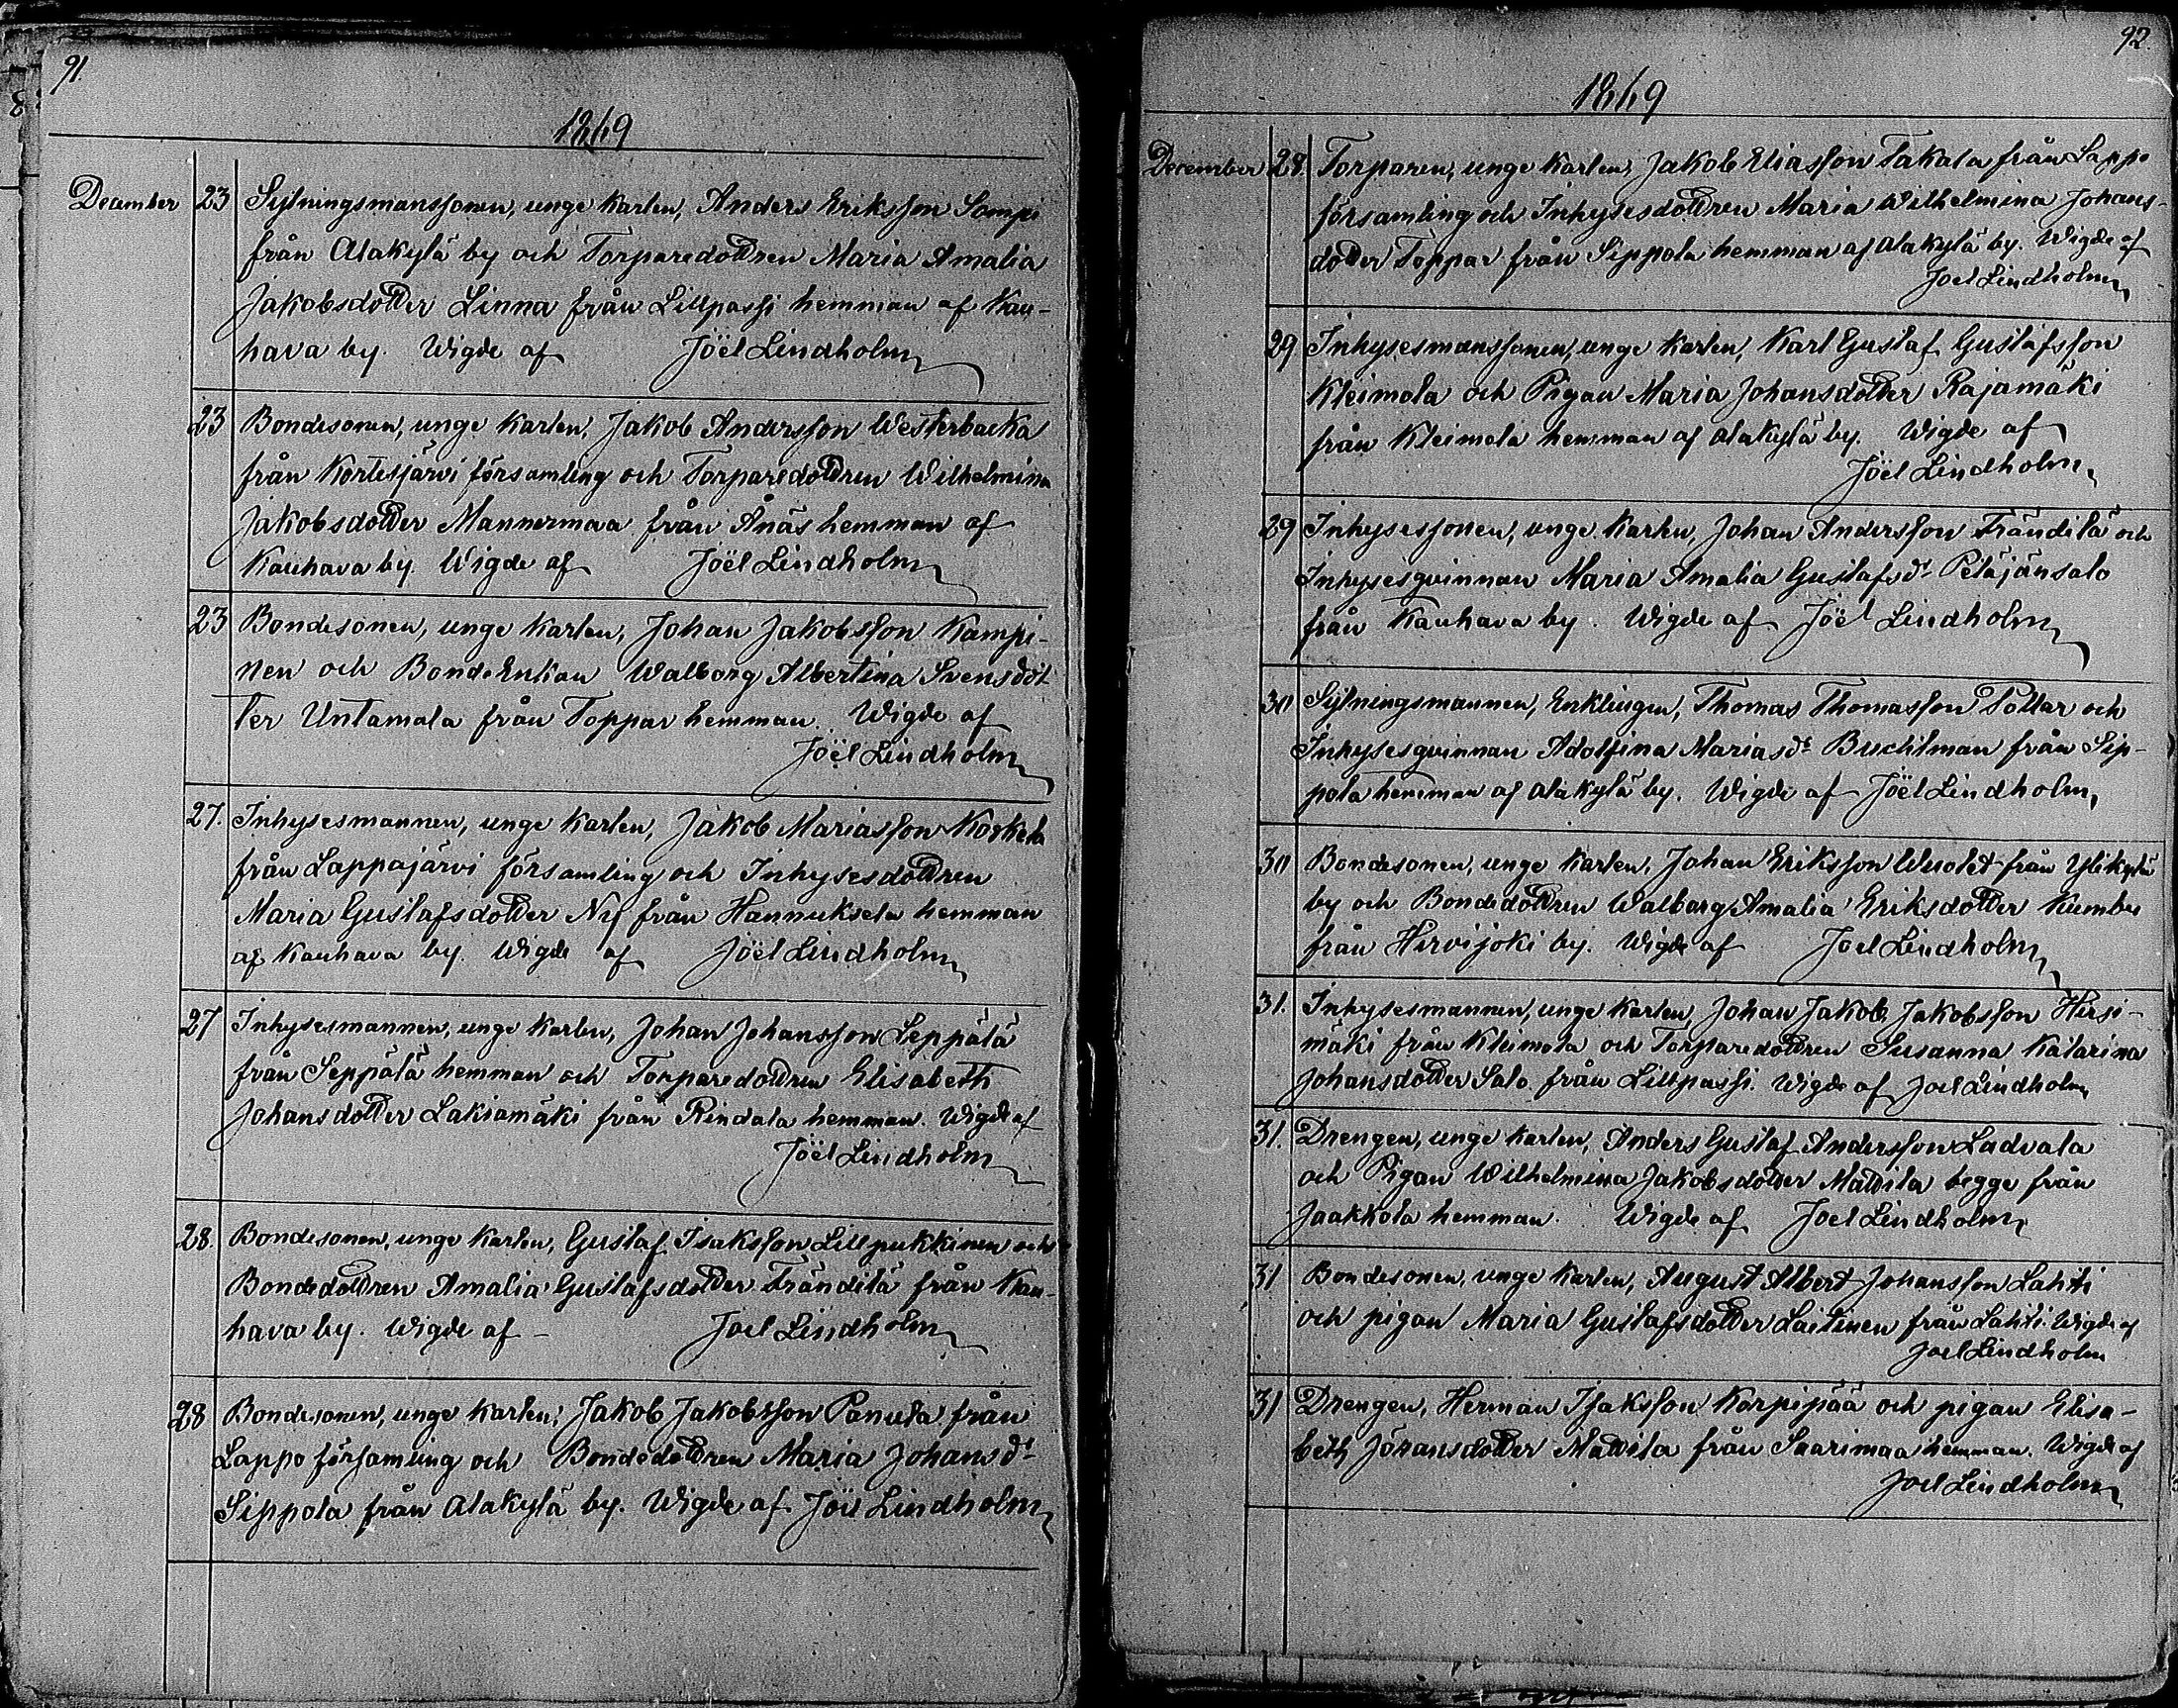 91.
1869
December 23 Sytningsmanssonen, unge Karlen, Anders Eriksson Sompi
från Alakylä by och Torparedottren Maria Amalia
Jakobsdotter Linna från Lillpassi hemman af Kau-
hava by. Wigde af Joël Lindholm
23 Bondesonen, unge Karlen, Jakob Andersson Westerbacka
från Kortesjärvi församling och Torparedottren Wilhelmina
Jakobsdotter Mannermaa från Ånäs hemman af
Kauhava by Wigde af Joël Lindholm
23 Bondesonen, unge Karlen, Johan Jakobsson Kampi-
nen och BondeEnkan Walborg Albertina Svensdot-
ter Untamala från Toppar hemman. Wigde af
Joël Lindholm
27. Inhysesmannen, unge Karlen, Jakob Mariasson Korkela
från Lappajärvi församling och Inhysesdottren
Maria Gustafsdotter Ny från Hannuksela hemman
af Kauhava by. Wigde af Joël Lindholm
27 Inhysesmannen, unge Karlen, Johan Johansson Seppälä
från Seppälä hemman och Torparedottren Elisabeth
Johansdotter Lakiamäki från Rindala hemman. Wigde af
Joël Lindholm
28. Bondesonen, unge Karlen, Gustaf Isaksson Lillpukkinen och
Bondedottren Amalia Gustafsdotter Frändilä från Kau-
hava by. Wigde af - Joel Lindholm
28 Bondesonen, unge Karlen, Jakob Jakobsson Panula från
Lappo församling och Bondedottren Maria Johansdr
Sippola från Alakylä by. Wigde af Joël Lindholm
92.
1869
December 28. Torparen, unge Karlen, Jakob Eliasson Takala från Lappo
församling och Inhysesdottren Maria Wilhelmina Johans-
dotter Toppar från Sippola hemman af Alakylä by. Wigde af
Joel Lindholm
29 Inhysesmanssonen, unge Karlen, Karl Gustaf Gustafsson
Kleimola och Pigan Maria Johansdotter Rajamäki
från Kleimola hemman af Alakylä by. Wigde af
Joël Lindholm
29 Inhysessonen, unge Karlen, Johan Andersson Frändilä och
Inhysesqvinnan Maria Amalia Gustafsdr Petäjänsalo
från Kauhava by. Wigde af Joël Lindholm
30 Sytningsmannen, Enklingen, Thomas Thomasson Pottar och
Inhysesqvinnan Adolfina Mariasdr Buchtman från Sip-
pola hemman af Alakylä by. Wigde af Joël Lindholm
30 Bondesonen, unge Karlen, Johan Eriksson Wuolet från Ylikylä
by och Bondedottren Walborg Amalia Eriksdotter
från Hirvijoki by. Wigde af Joel Lindholm
31. Inhysesmannen, unge Karlen, Johan Jakob Jakobsson Hirsi-
mäki från Kleimola och Torparedottren Susanna Katarina
Johansdotter Salo från Lillpassi. Wigde af Joel Lindholm
31. Drengen, unge Karlen, Anders Gustaf Andersson Ladvala
och Pigan Wilhelmina Jakobsdotter Mattila begge från
Jaakkola hemman. Wigde af Joel Lindholm
31 Bondesonen, unge Karlen, August Albert Johansson Lahti
och pigan Maria Gustafsdotter Laitinen från Lahti. Wigde af
Joel Lindholm
31 Drengen, Herman Isaksson Karpipää och pigan Elisa-
beth Johansdotter Mattila från Saarimaa hemman. Wigde af
Joel Lindholm